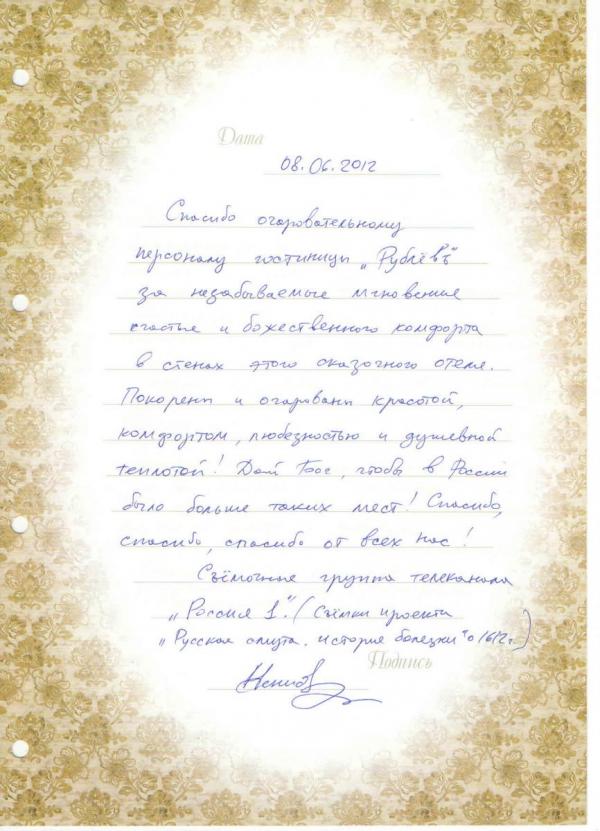 Дата
08.06.2012
Спасибо очаровательному
персоналу гостиницы „Рублёвъ"
за незабываемые мгновение
счастье и божественного комфорта
в стенах этого сказочного отеля.
Покорены и очарованы красотой,
комфортом, любезностью и душевной
теплотой! Дай Бог, чтобы в России
было больше таких мест! Спасибо,
спасибо, спасибо от всех нас!
Съёмочная группа телеканала
„Россия 1". (Съёмки проекта
„Русская смута. История болезни" о 1612г.)
Подпись